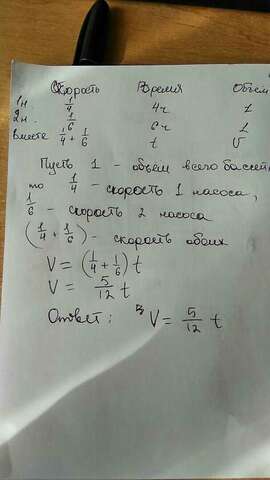 Скорость Время Объём
1н. 1/4 4ч 1
2н. 1/6 6ч 1
вместе 1/4 + 1/6 t V
Пусть 1 - объем всего бассейн
то 1/4 - скорость 1 насоса,
1/6 - скорость 2 насоса
(1/4 + 1/6) - скорость обоих
V = (1/4 + 1/6) t
V = 5/12 t
Ответ: V = 5/12 t